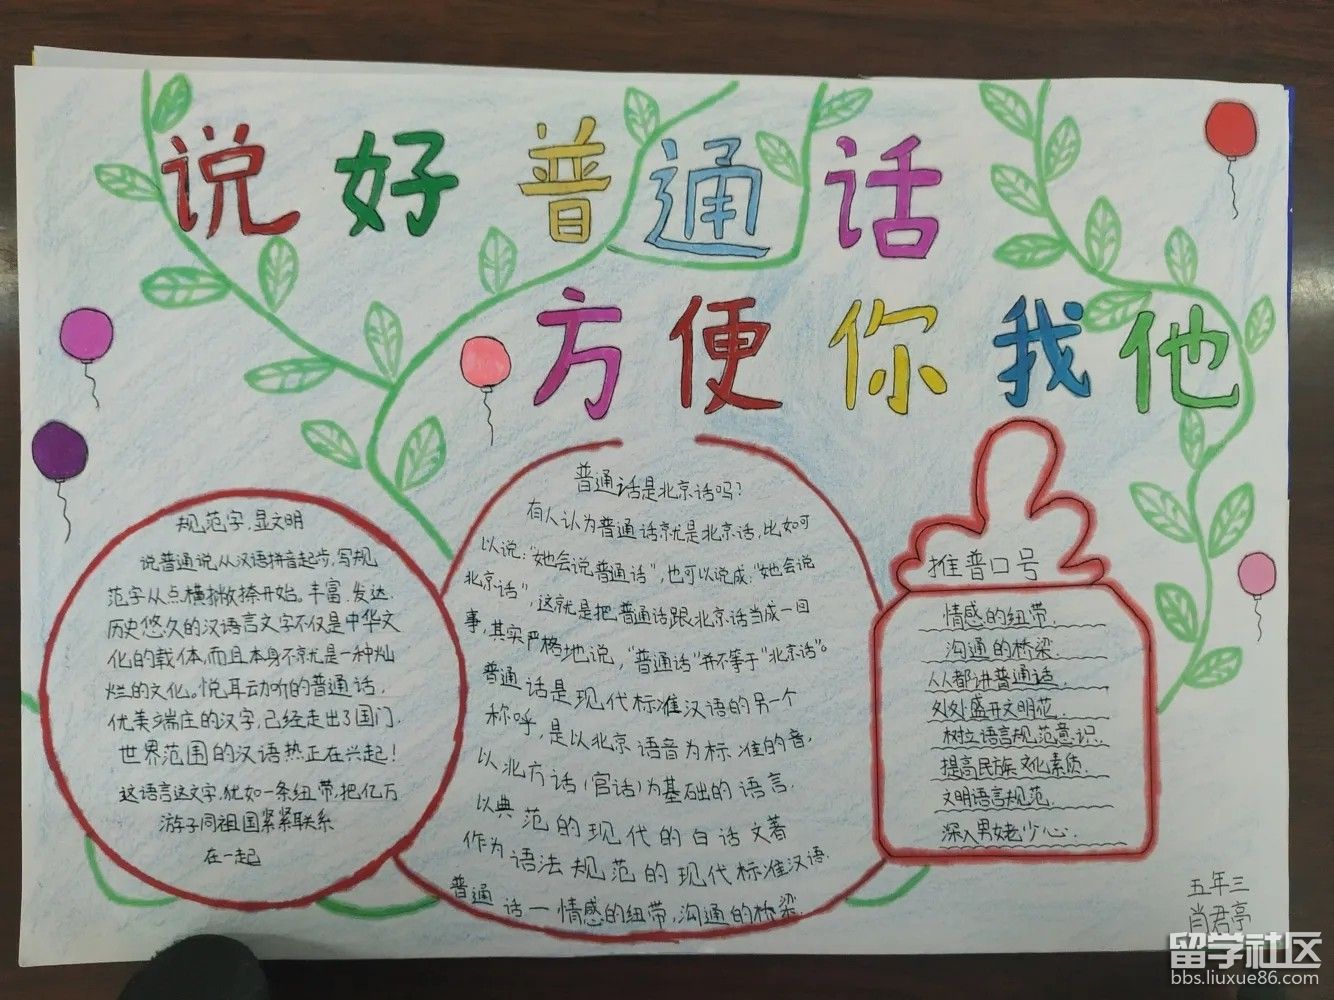 说好普通话
方便你我他
规范字,显文明
说普通说,从汉语拼音起步,写规
范字从点横撇捺开始。丰富.发达.
历史悠久的汉语言文字不仅是中华文
化的载体,而且本身不就是一种灿
烂的文化。悦耳动听的普通话,
优美端庄的汉字,已经走出了国门.
世界范围的汉语热正在兴起!
这语言这文字,犹如一条纽带,把亿万
游子同祖国紧紧联系
在一起
普通话是北京话吗?
有人认为普通话就是北京话,比如可
以说:“她会说普通话”,也可以说成:“她会说
北京话”,这就是把普通话跟北京话当成一回
事,其实严格地说,“普通话”并不等于“北京话”。
普通话是现代标准汉语的另一个
称呼,是以北京语音为标准的音,
以北方话(官话)为基础的语言,
以典范的现代的白话文著
作为语法规范的现代标准汉语.
普通话一情感的纽带,沟通的桥梁.
推普口号
情感的纽带.
沟通的桥梁.
人人都讲普通话.
处处盛开文明花.
树立语言规范意识.
提高民族文化素质.
文明语言规范.
深入男女老少心.
五年三
肖君亭
留学社区
bbs.liuxue86.com